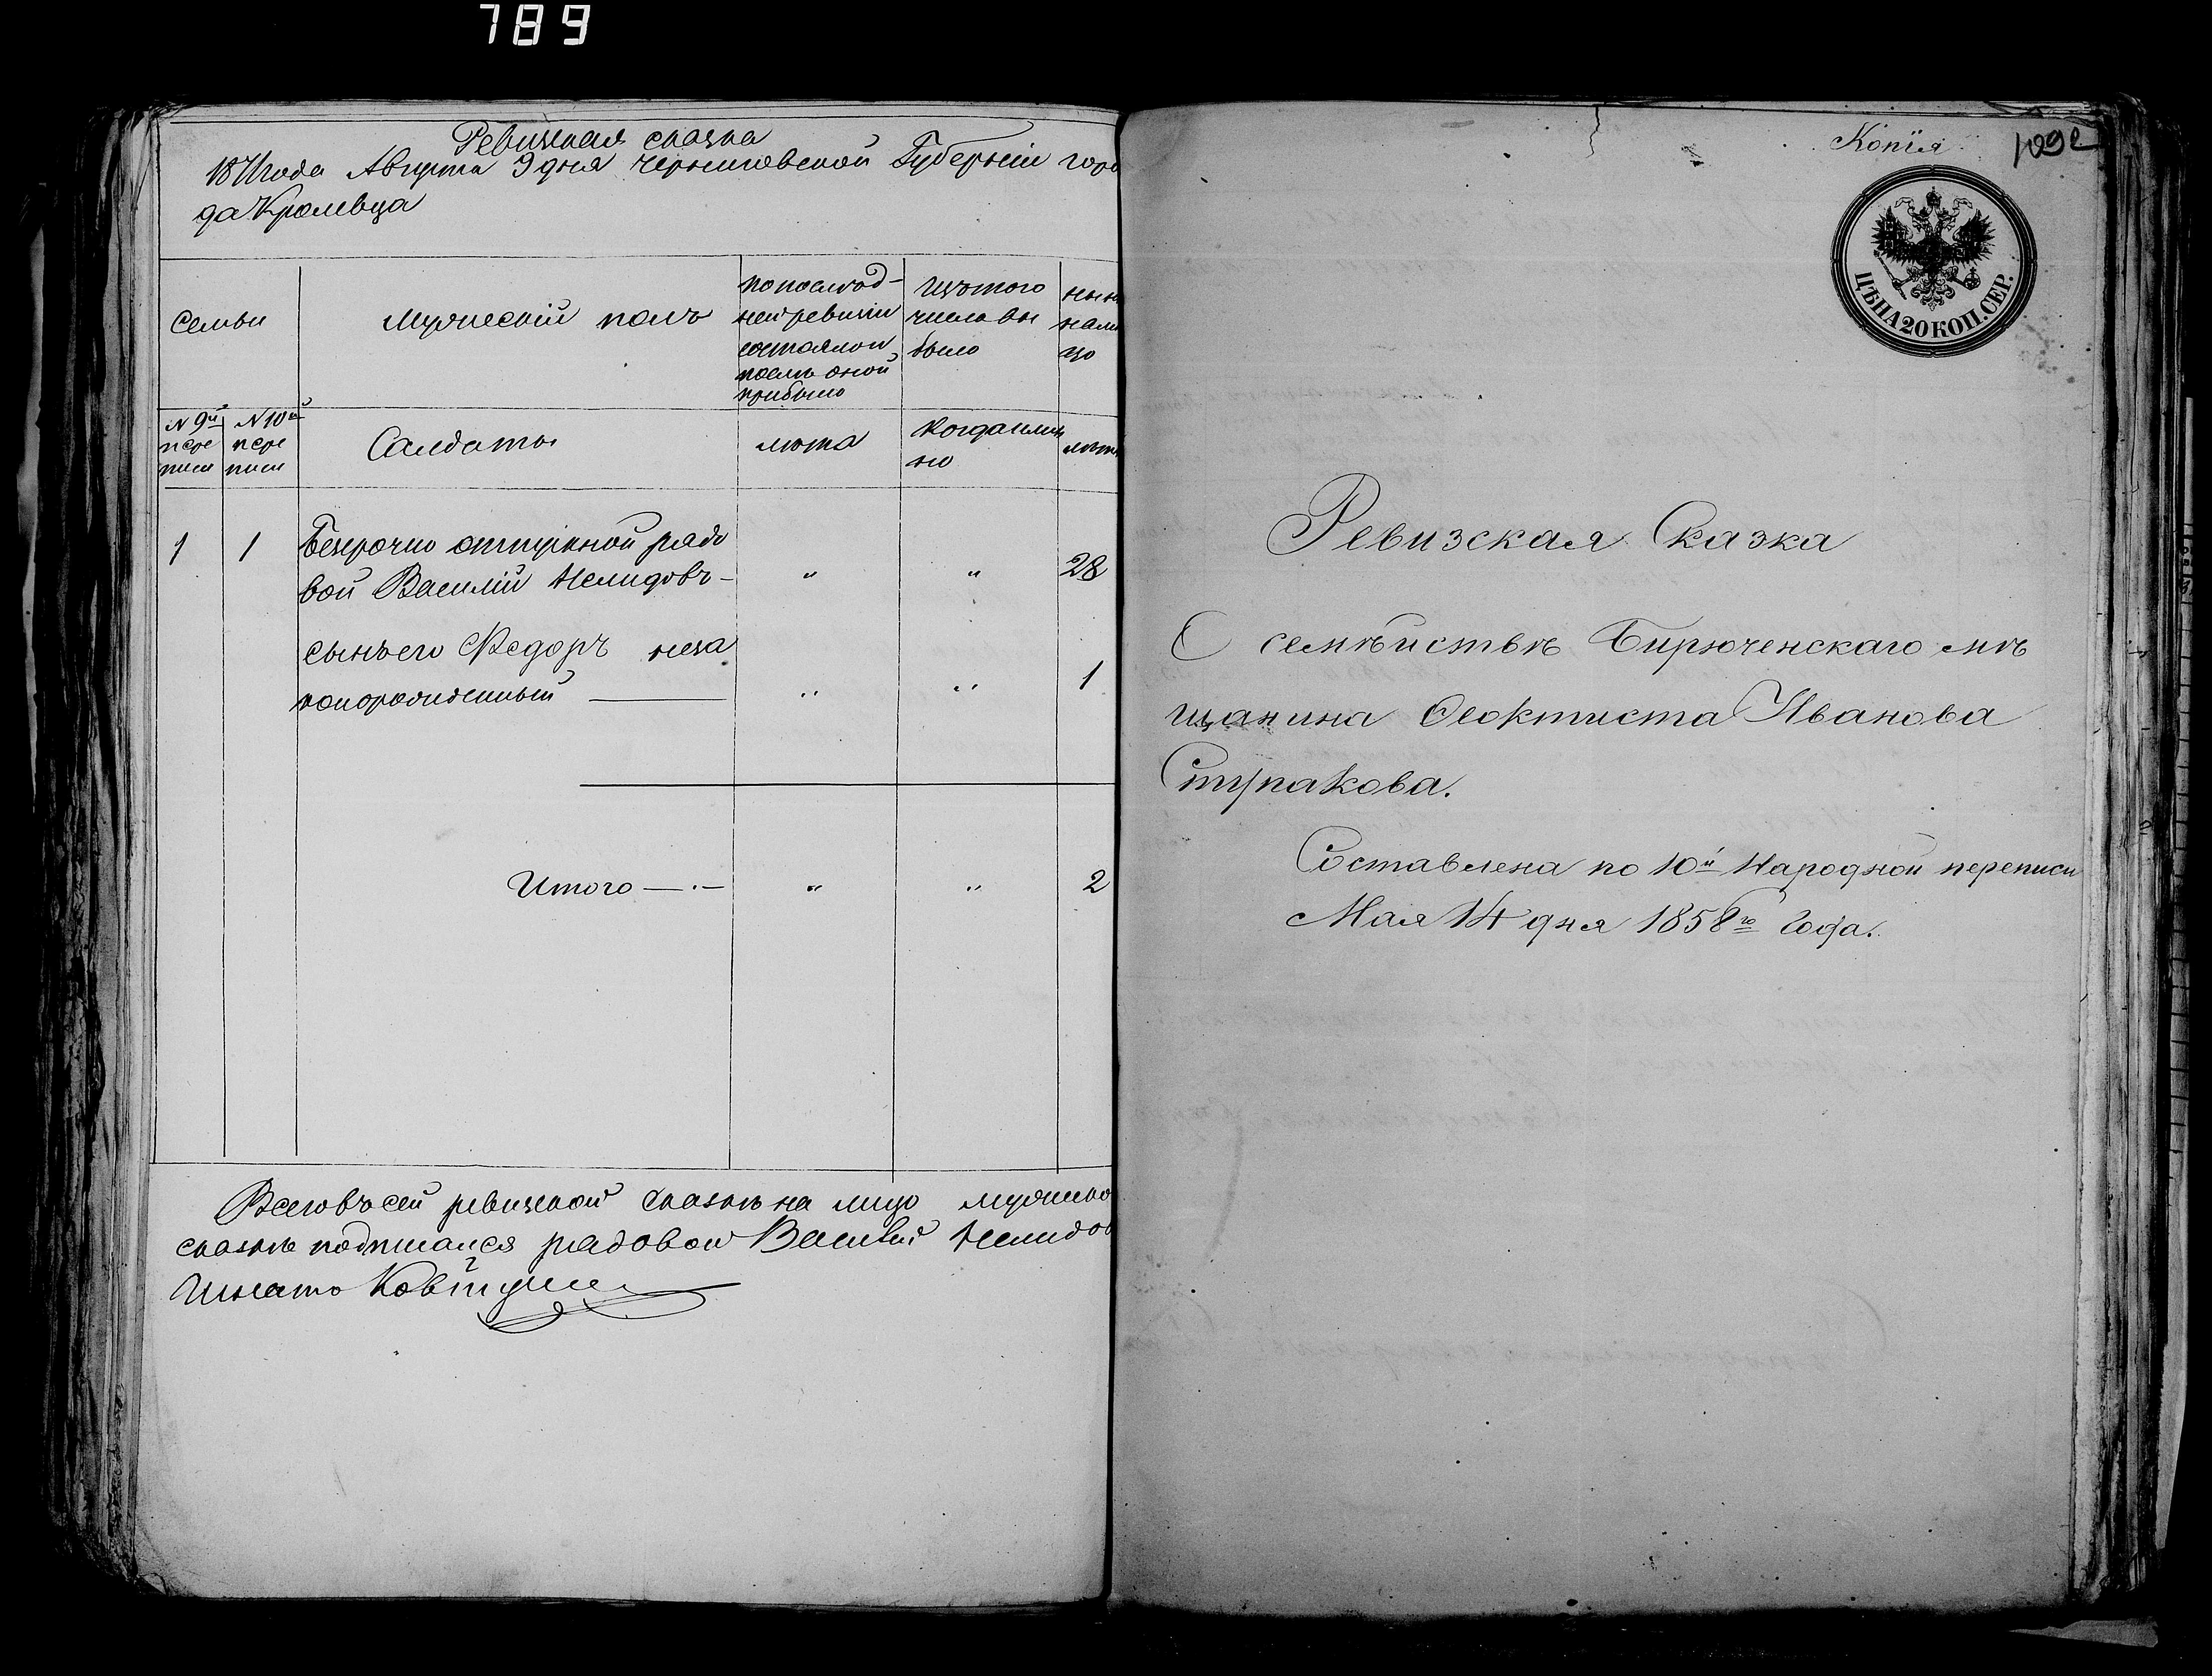 789
Ревизская сказка
1871 года Августа 9 дня Черниговской Губерніи горо
да Кролевца
Семьи
Мужескій полъ
по послѣд-
ней ревизіи
состоялои
послѣ оной
прибыло
Изъ того
числа вы
было
нынѣ
нали
цо
N 9й
пере
писи
N 10й
пере
писи
Салдаты
лѣта
Когда имен
но
лѣта
1 1 Безсрочно отпускной рядо
вой Василій Нелидовъ - " " 28
сынъ его Федоръ неза
конорожденный — " " 1
Итого — · — " " 2
Всего въ сей ревизской сказкѣ на лицо мужеско
сказкѣ подписался рядовой Василій Нелидов
Игнатъ
Копія
109
ЦѢНА 20 КОП. СЕР.
Ревизская Сказка
О семѣйствѣ Бирюченскаго мѣ
щанина Ѳеоктиста Иванова
Ступакова.
Составлена по 10й Народной переписи
Мая 14 дня 1858го Года.